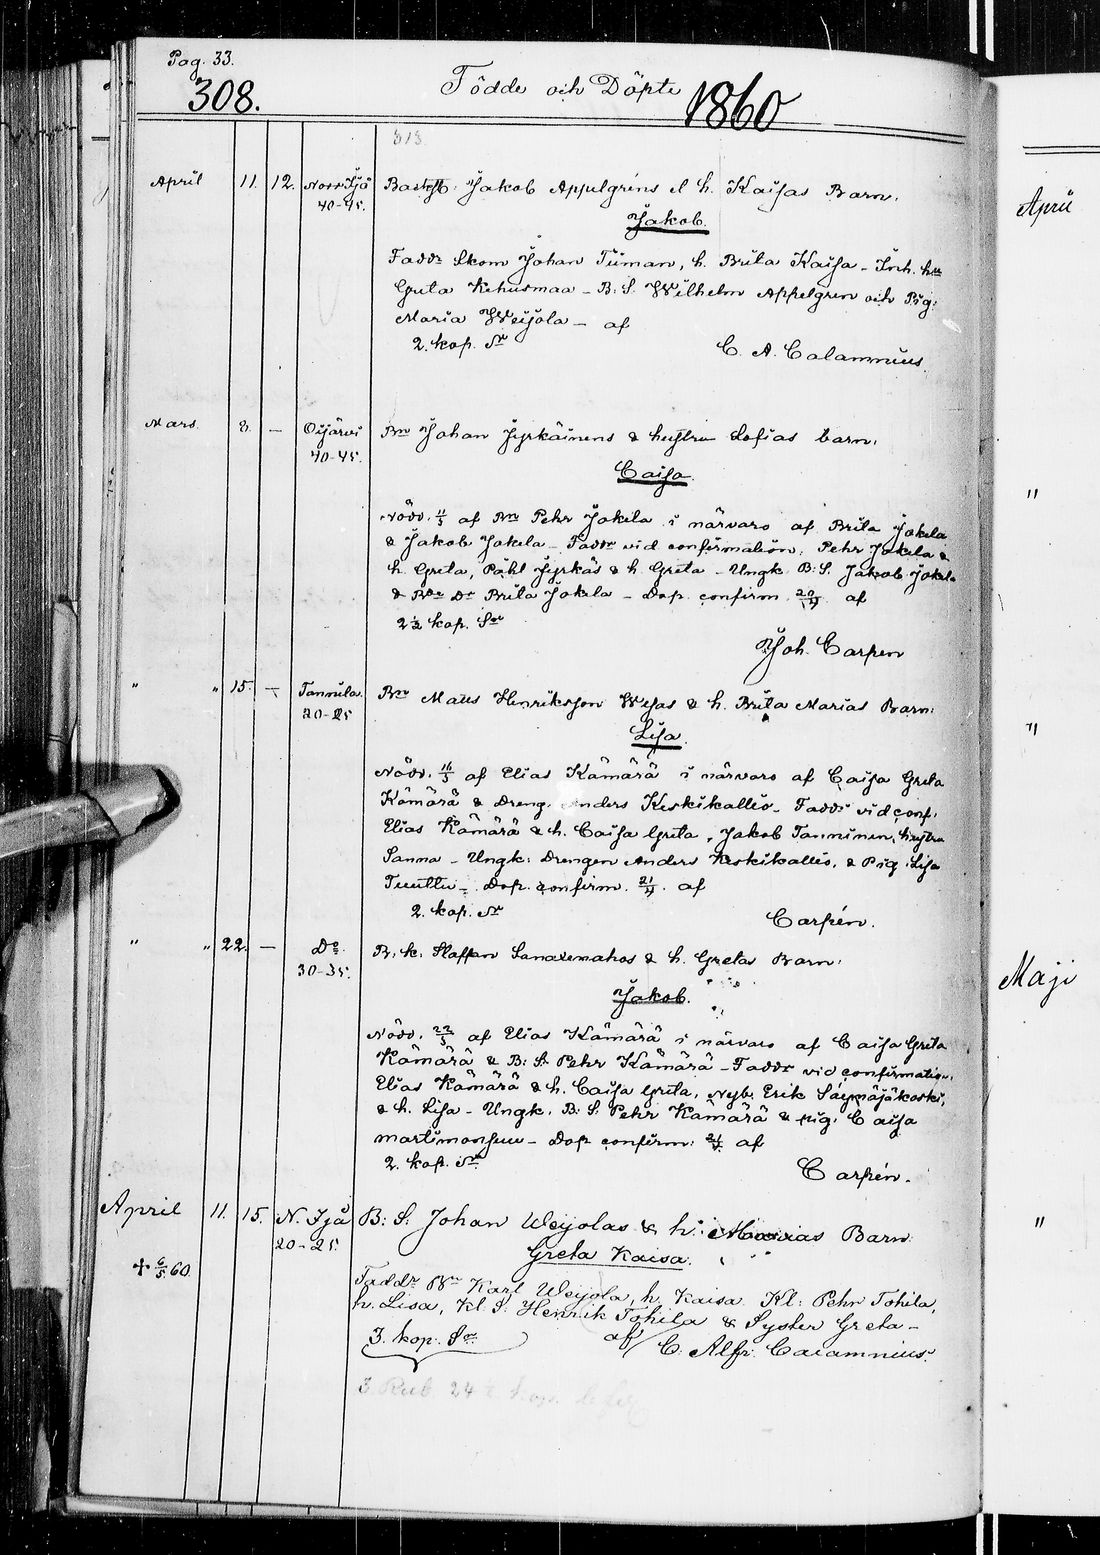 Pag. 33.
308.
Födde och Döpte 1860
313.
April 11. 12. Norr Ijå Jakob Appelgrens & h. Kaisas Barn.
40-45.
Jakob.
Faddr Skom Johan Timan, h. Brita Kaisa – Inh. hu
Greta Kehusmaa – B: S. Wilhelm Appelgren och Pig:
Maria Weijola – af
2. kop. Sr C. A. Calamnius.
Mars. 8. – Oijärvi Bn Johan Jyrkäinens & hustru Sofias barn.
40-45.
Caisa.
Nödd. 11/3 af Bn Pehr Jokela i närvaro af Brita Jokela
& Jakob Jokela – Faddr vid confirmation: Pehr Jokela &
h. Greta, Påhl Jyrkäs & h. Greta – Ungk. B: S. Jakob Jokela
& Bde Dr Brita Jokela – Dop. confirm. 20/4 af
2 1/2 kop. Sr
Joh. Carpen
" " 15. – Tannila Bn Matts Henriksson Wejas & h. Brita Marias Barn:
20-25
Lisa.
Nödd. 16/3 af Elias Kämärä i närvaro af Caisa Greta
Kämärä & Dreng. Anders Keskikallio – Faddr vid conf.
Elias Kämärä & h. Caisa Greta, Jakob Tanninen, hustru
Sanna – Ungk: Drengen Anders Keskikallio, & Pig. Lisa
Tuuttu – Dop. confirm. 21/4. af
2. kop. Sr Carpén.
" " 22. – Do B. k. Staffan & h. Gretas Barn:
30-35.
Jakob.
Nödd. 22/3 af Elias Kämärä i närvaro af Caisa Greta
Kämärä & B: S. Pehr Kämärä – Faddr vid confirmation.
Elias Kämärä & h. Caisa Greta, Nyb. Erik
& h. Lisa – Ungk. B. S. Pehr Kämärä & pig: Caisa
– Dop confirm: 21/4 af
2. kop. Sr Carpén.
April 11. 15. N. Ijå B: S: Johan Weijolas & h: Marias Barn:
20-25.
Greta Kaisa.
+ 6/5 60.
Faddr Bn Karl Weijola, h. Kaisa. Kl: Pehr Tohila,
h. Lisa, Kl. S. Henrik Tohila & Syster Greta –
3. kop. Sr. af C. Alfr. Calamnius.
3 Rub 24
April
"
"
Maji
"